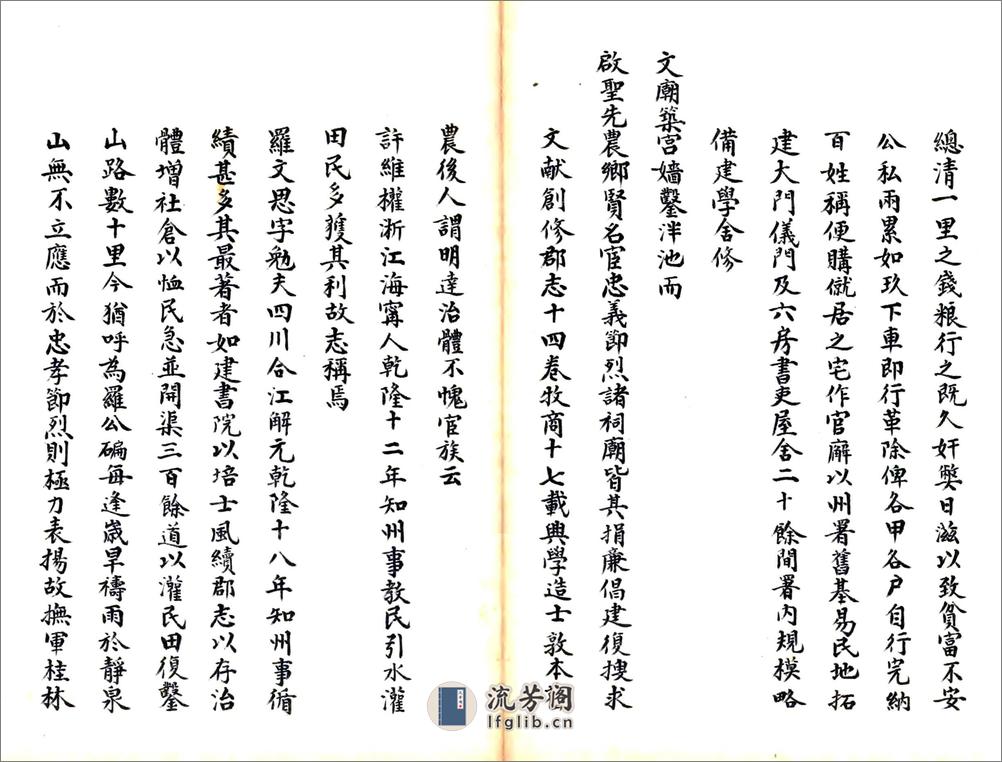 總清一里之錢粮行之既久奸弊日滋以致貧富不安
公私兩累如玖下車即行革除俾各甲各户自行完納
百姓稱便購僦居之宅作官廨以州署舊基易民地拓
建大門儀門及六房書吏屋舍二十餘間署內規模略
備建學舍修
文廟築宮嬙鑿泮池而
啟聖先農鄉賢名宦忠義節烈諸祠廟皆其捐廉倡建復搜求
文献創修郡志十四卷牧商十七載興學造士敦本
農後人謂明達治體不愧官族云
許維權浙江海寧人乾隆十二年知州事教民引水灌
田民多獲其利故志稱焉
羅文思字勉夫四川合江解元乾隆十八年知州事循
績甚多其最著者如建書院以培士風續郡志以存治
體增社倉以恤民急並開渠三百餘道以灌民田復鑿
山路數十里今猶呼為羅公碥每逢歲旱禱雨於靜泉
山無不立應而於忠孝節烈則極力表揚故撫軍桂林
流芳阁
lfglib.cn